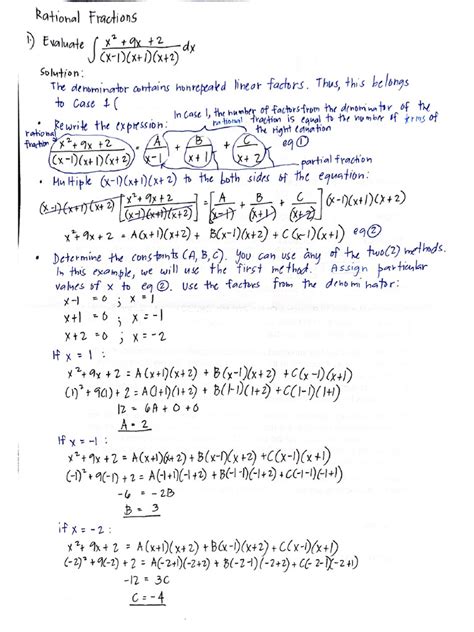 Rational Fractions
1.) Evaluate ∫ x² + 9x + 2 / (x-1)(x+1)(x+2) dx
Solution:
The denominator contains nonrepeated linear factors. Thus, this belongs
to Case 1 (
In Case 1, the number of factors from the denominator of the
rational fraction is equal to the number of terms of
the right equation
• Rewrite the expression:
rational fraction
x² + 9x + 2 / (x-1)(x+1)(x+2) = A / x-1 + B / x+1 + C / x+2 eq ①
partial fraction
• Multiple (x-1)(x+1)(x+2) to the both sides of the equation:
(x-1)(x+1)(x+2) [x² + 9x + 2 / (x-1)(x+1)(x+2)] = [A / (x-1) + B / (x+1) + C / (x+2)] (x-1)(x+1)(x+2)
x² + 9x + 2 = A(x+1)(x+2) + B(x-1)(x+2) + C(x-1)(x+1) eq ②
• Determine the constants (A, B, C). You can use any of the two (2) methods.
In this example, we will use the first method. Assign particular
values of x to eq ②. Use the factors from the denominator:
x-1 = 0 ; x = 1
x+1 = 0 ; x = -1
x+2 = 0 ; x = -2
If x = 1 :
x² + 9x + 2 = A(x+1)(x+2) + B(x-1)(x+2) + C(x-1)(x+1)
(1)² + 9(1) + 2 = A(1+1)(1+2) + B(1-1)(1+2) + C(1-1)(1+1)
12 = 6A + 0 + 0
A = 2
If x = -1 :
x² + 9x + 2 = A(x+1)(x+2) + B(x-1)(x+2) + C(x-1)(x+1)
(-1)² + 9(-1) + 2 = A(-1+1)(-1+2) + B(-1-1)(-1+2) + C(-1-1)(-1+1)
-6 = -2B
B = 3
if x = -2 :
x² + 9x + 2 = A(x+1)(x+2) + B(x-1)(x+2) + C(x-1)(x+1)
(-2)² + 9(-2) + 2 = A(-2+1)(-2+2) + B(-2-1)(-2+2) + C(-2-1)(-2+1)
-12 = 3C
C = -4